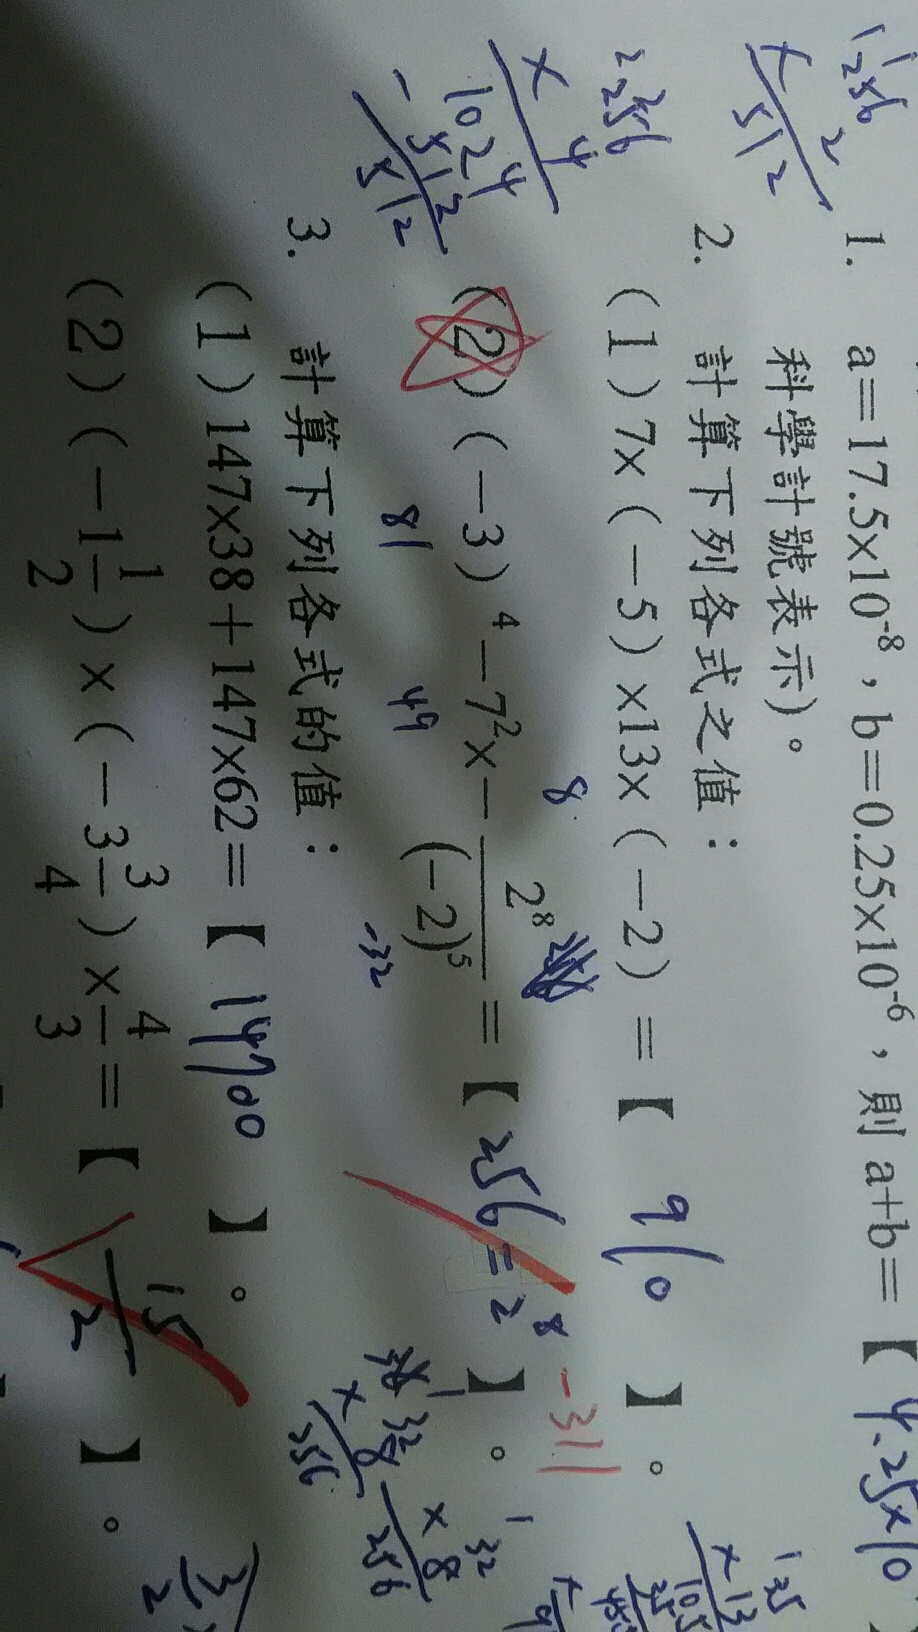 1. a=17.5×10⁻⁸，b=0.25×10⁻⁶，則 a+b=【 4.25×10
科學計號表示)。
2. 計算下列各式之值：
(1) 7×(－5)×13×(－2)=【 910 】。
(2) (－3)⁴－7²×－2⁸/(－2)⁵=【 256=2⁸ 】。 -311
8
81 49 -32
3. 計算下列各式的值：
(1) 147×38＋147×62=【 14700 】。
(2) (－1 1/2)×(－3 3/4)×4/3=【 15/2 】。
256
× 2
512
256
× 4
1024
- 512
512
32
× 8
256
32
× 8
256
35
× 13
105
35